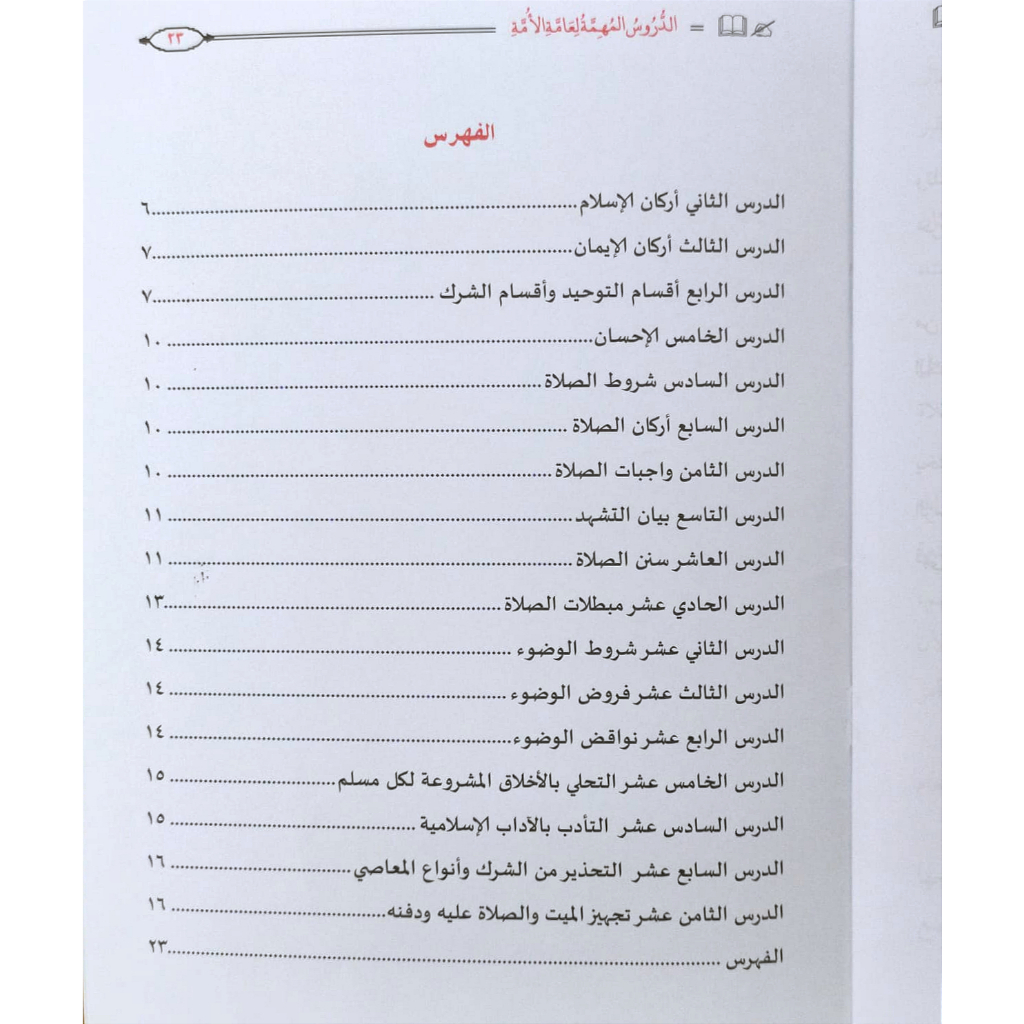 الدُّرُوسُ المُهِمَّةُ لِعَامَّةِ الأُمَّةِ = ٢٣
الفهرس
الدرس الثاني أركان الإسلام ٦
الدرس الثالث أركان الإيمان ٧
الدرس الرابع أقسام التوحيد وأقسام الشرك ٧
الدرس الخامس الإحسان ١٠
الدرس السادس شروط الصلاة ١٠
الدرس السابع أركان الصلاة ١٠
الدرس الثامن واجبات الصلاة ١٠
الدرس التاسع بيان التشهد ١١
الدرس العاشر سنن الصلاة ١١
الدرس الحادي عشر مبطلات الصلاة ١٣
الدرس الثاني عشر شروط الوضوء ١٤
الدرس الثالث عشر فروض الوضوء ١٤
الدرس الرابع عشر نواقض الوضوء ١٤
الدرس الخامس عشر التحلي بالأخلاق المشروعة لكل مسلم ١٥
الدرس السادس عشر التأدب بالآداب الإسلامية ١٥
الدرس السابع عشر التحذير من الشرك وأنواع المعاصي ١٦
الدرس الثامن عشر تجهيز الميت والصلاة عليه ودفنه ١٦
الفهرس ٢٣